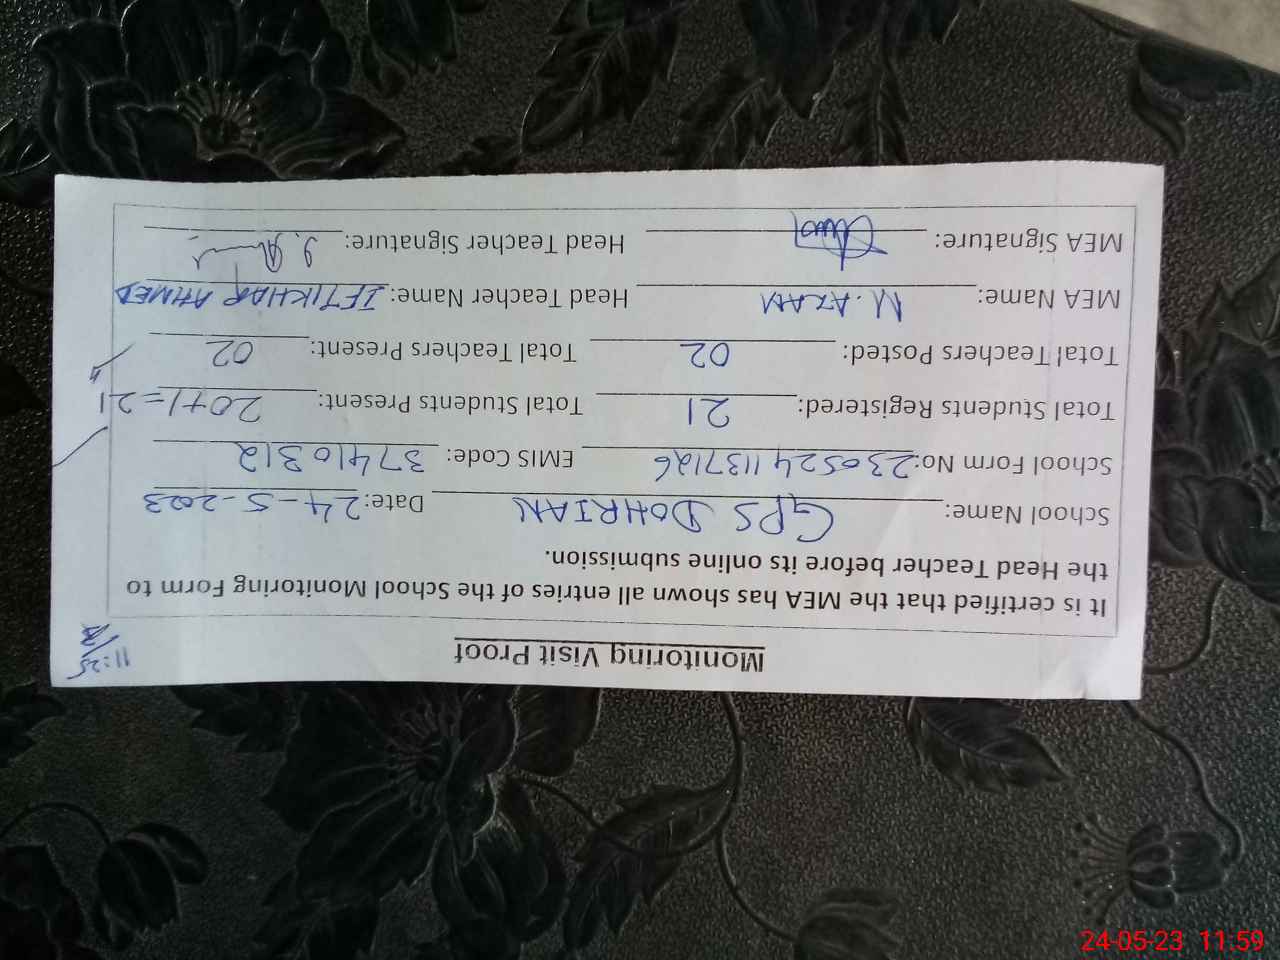 Monitoring Visit Proof
11:25
It is certified that the MEA has shown all entries of the School Monitoring Form to
the Head Teacher before its online submission.
School Name: GPS DOHRIAN Date: 24-5-2023
School Form No: 2305241137126 EMIS Code: 37410312
Total Students Registered: 21 Total Students Present: 20+1=21
Total Teachers Posted: 02 Total Teachers Present: 02
MEA Name: M. AZAM Head Teacher Name: IFTIKHAR AHMED
MEA Signature: Head Teacher Signature:
24-05-23 11:59